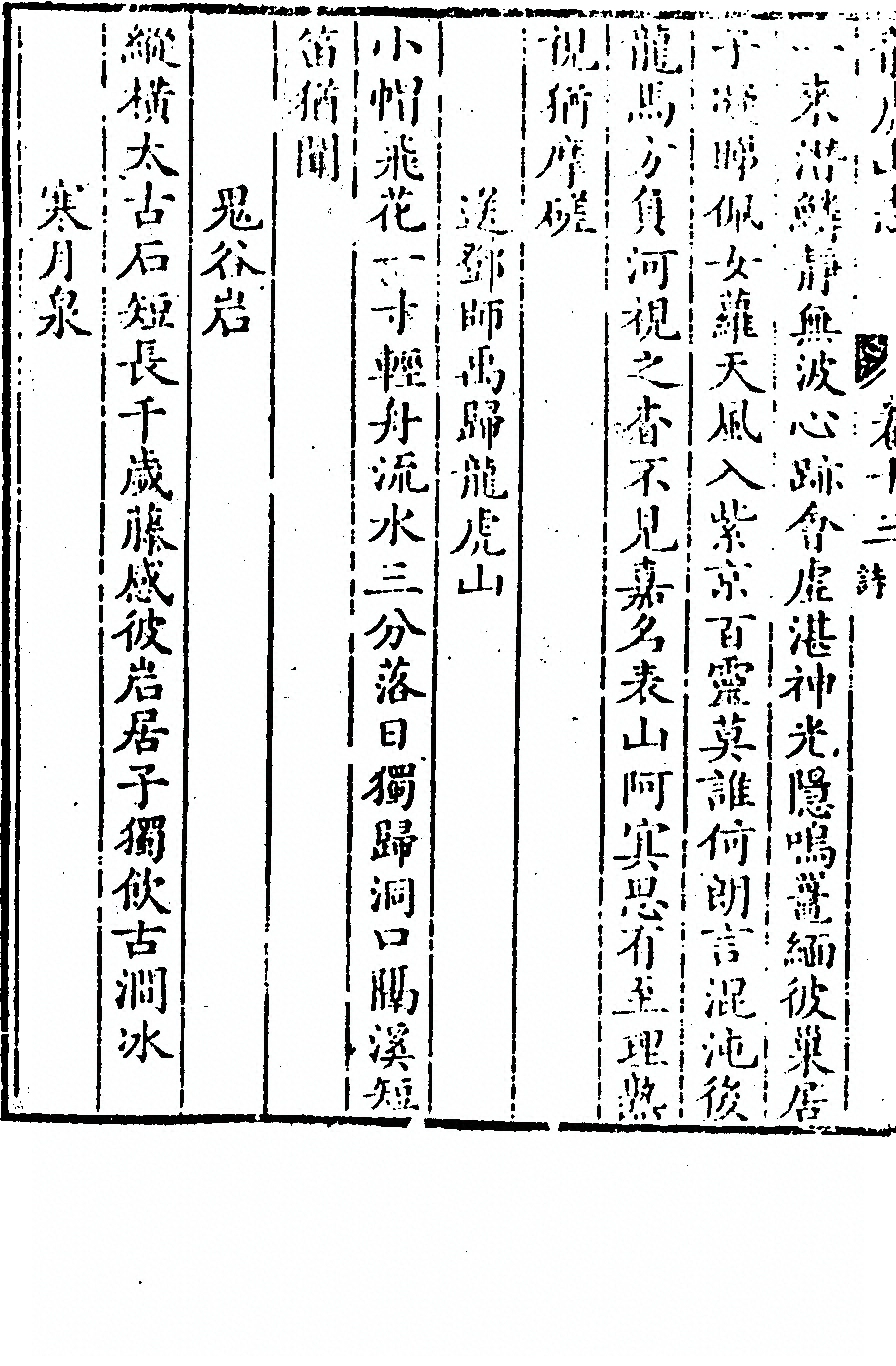 龍虎山志 卷十二 詩
一來潛鱗靜無波心跡會虛湛神光隱鳴鼉緬彼巢居
子凝睇佩女蘿天風入紫京百靈莫誰何朗言混沌後
龍馬方負河視之杳不見嘉名表山阿寘思有至理熟
視猶摩磋
送鄧師禹歸龍虎山
小帽飛花一寸輕舟流水三分落日獨歸洞口隔溪短
笛猶聞
鬼谷岩
縱橫太古石短長千歲藤感彼岩居子獨飲古澗冰
寒月泉